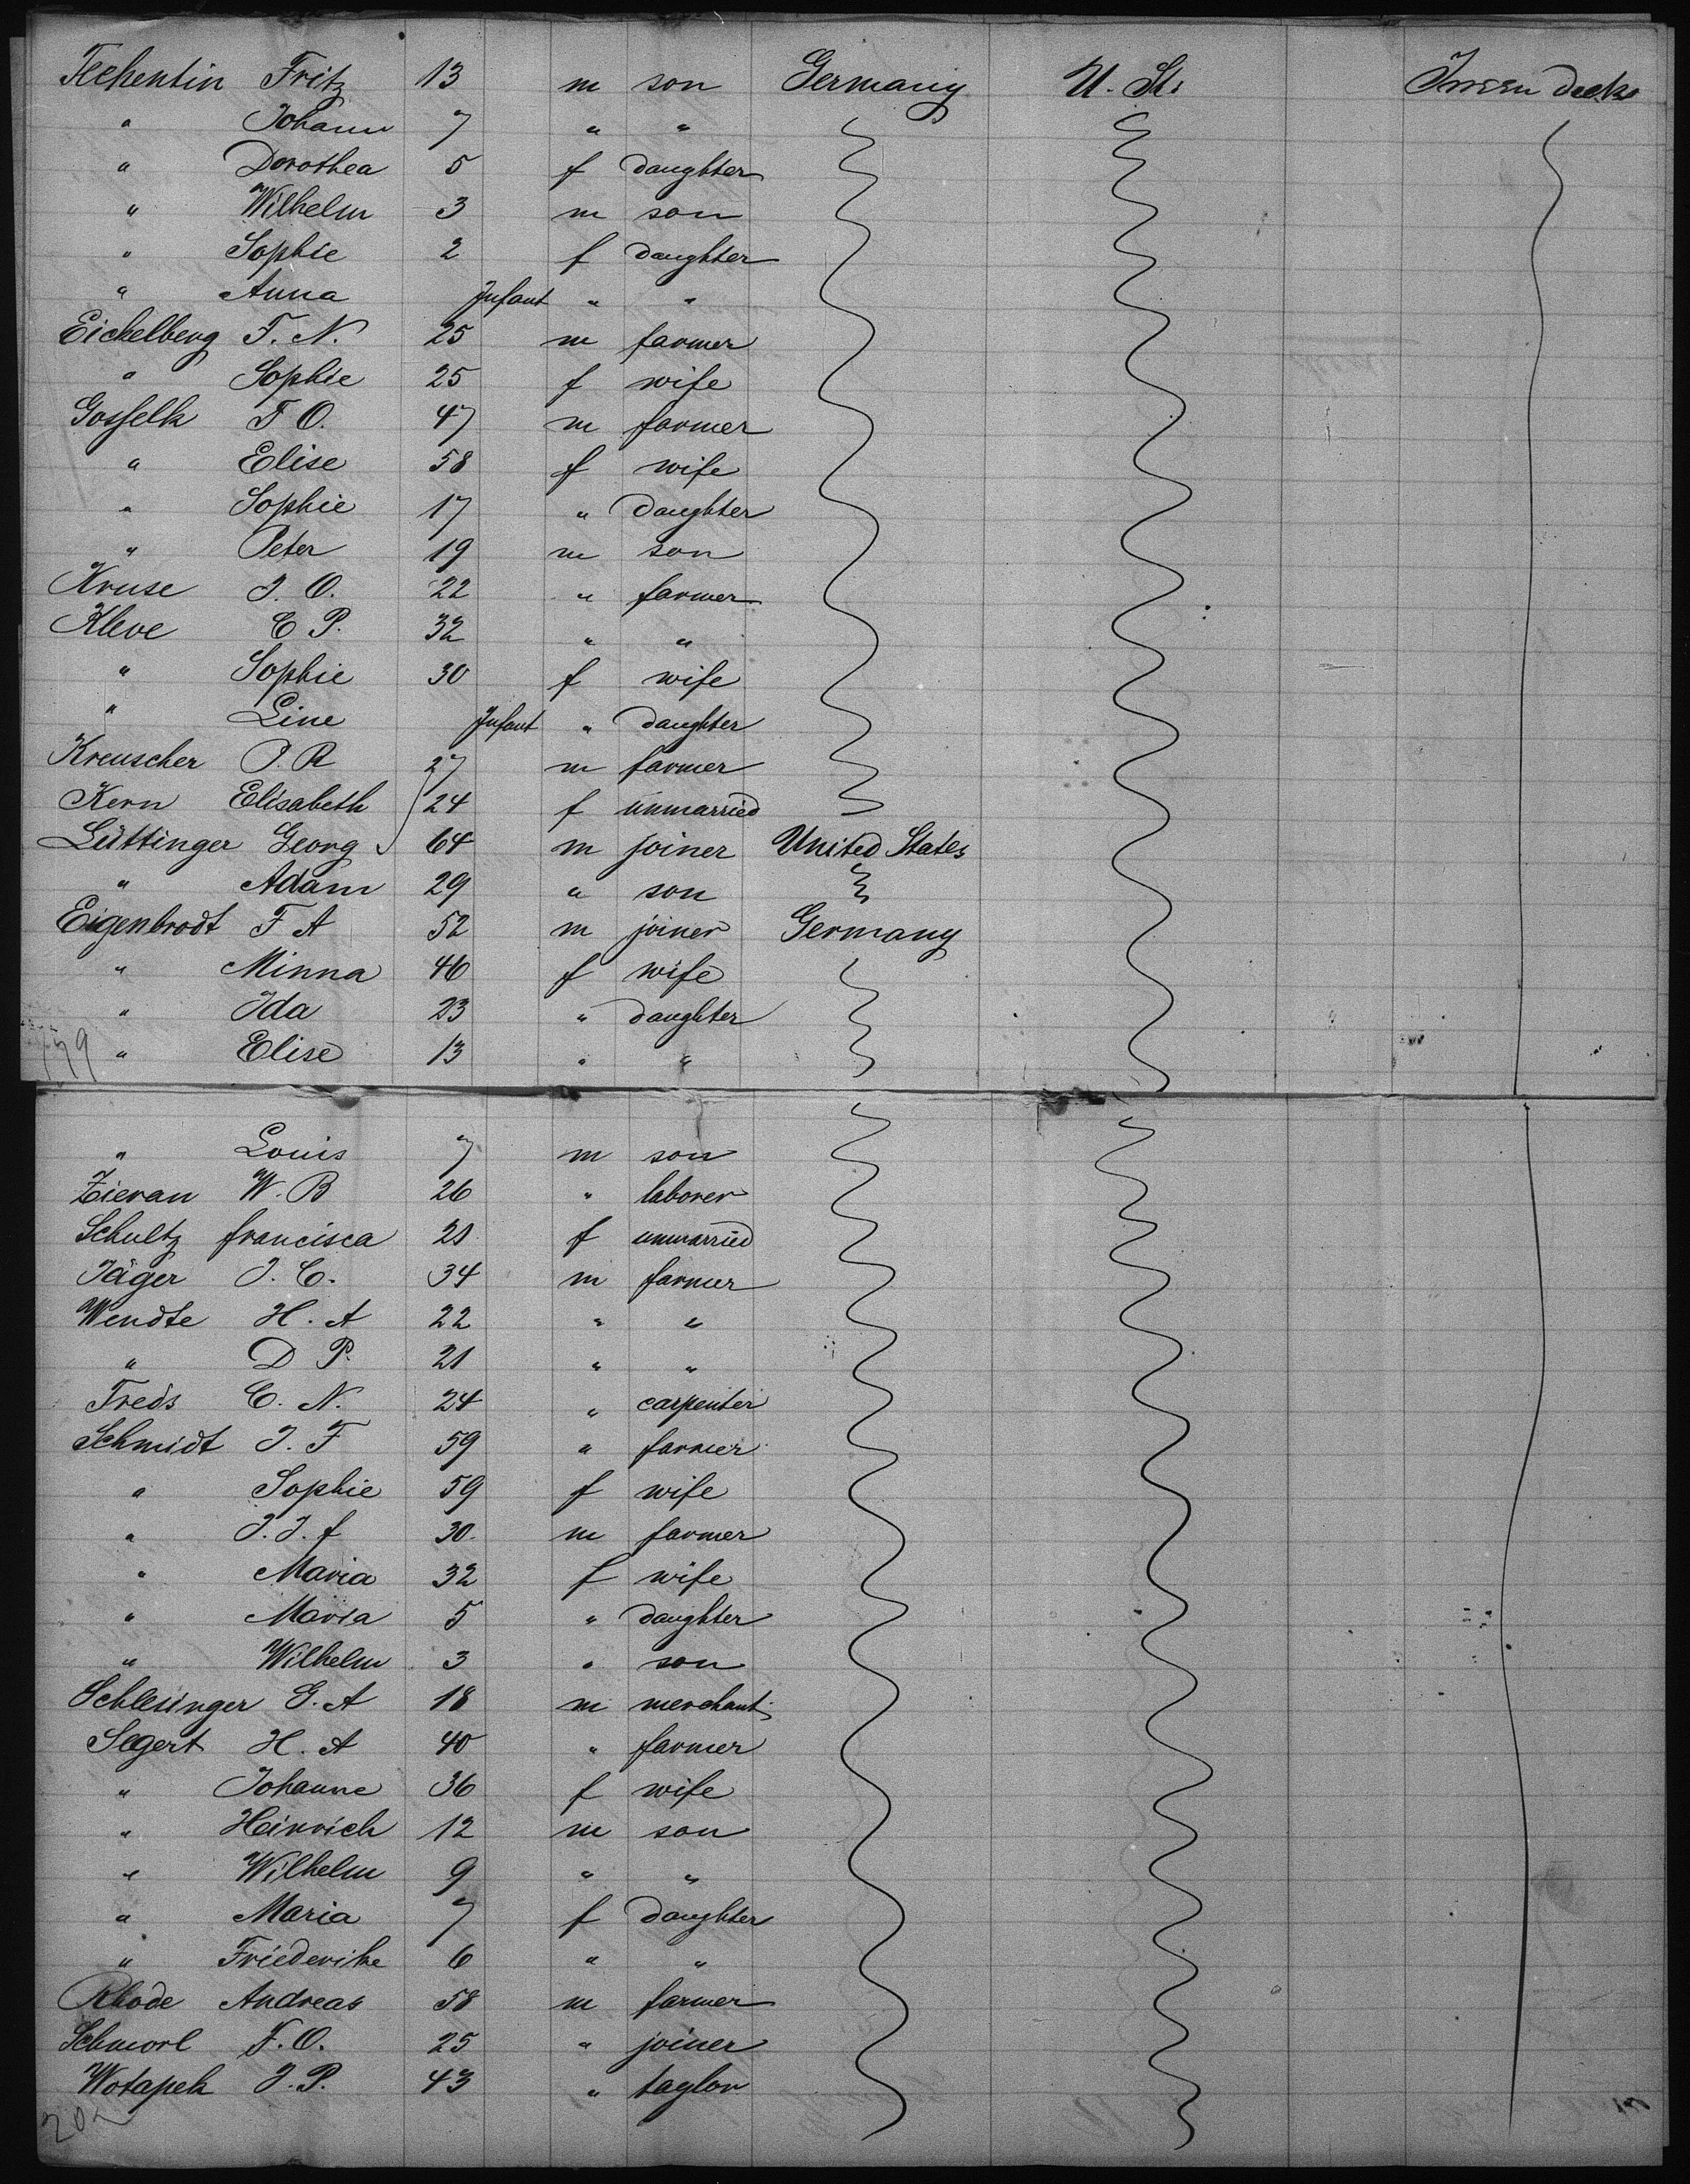 Techentin Fritz 13 m son Germany U. St.
" Johann 7 " "
" Dorothea 5 f daughter
" Wilhelm 3 m son
" Sophie 2 f daughter
" Anna Infant " "
Eichelberg F. N. 25 m farmer
" Sophie 25 f wife
Gosselk F O. 47 m farmer
" Elise 58 f wife
" Sophie 17 " daughter
" Peter 19 m son
Kruse J. O. 22 " farmer
Kleve C P. 32 " "
" Sophie 30 f wife
" Line Infant " daughter
Kreuscher P. R 27 m farmer
Kern Elisabeth 24 f unmarried
Lüttinger Georg 64 m joiner United States
" Adam 29 " son
Eigenbrodt F A 52 m joiner Germany
" Minna 46 f wife
" Ida 23 " daughter
" Elise 13 " "
" Louis 7 m son
Zieran W. B 26 " laborer
Schultz francisca 21 f unmarried
Jäger J. C. 34 m farmer
Wendte H. A 22 " "
" D P. 21 " "
Freds C. N. 24 " carpenter
Schmidt J. F 59 " farmer
" Sophie 59 f wife
" J. J. f 30 m farmer
" Maria 32 f wife
" Maria 5 " daughter
" Wilhelm 3 " son
Schlesinger G. A 18 m merchant
Segert H. A 40 " farmer
" Johanne 36 f wife
" Heinrich 12 m son
" Wilhelm 9 " "
" Maria 7 f daughter
" Friederike 6 " "
Rhode Andreas 58 m farmer
Schmorl F. O. 25 " joiner
Wotapek J. P. 43 " taylor